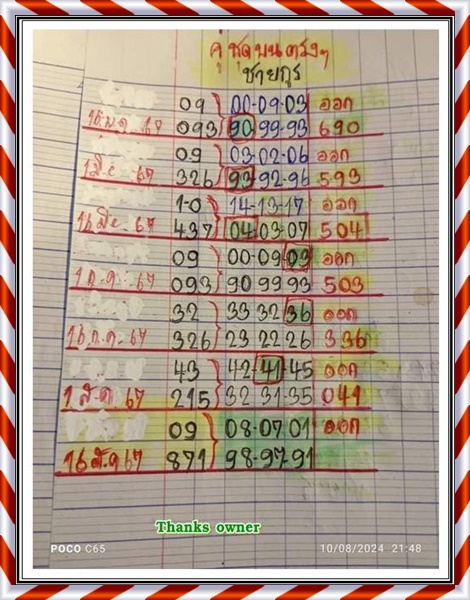 คู่ ชุดบน ตรงๆ
ชายกูร
09 00-09-03 ออก
16 พ.ค. 67 093 90-99-93 690
09 03-02-06 ออก
1 มิ.ย. 67 326 93 92-96 593
1-0 14-13-17 ออก
16 มิย. 67 437 04 03-07 504
09 00-09-03 ออก
1 ก.ค. 67 093 90 99 93 503
32 33 32 36 ออก
16 ก.ค. 67 326 23 22 26 336
43 42-41-45 ออก
1 ส.ค. 67 215 32 31-35 041
09 08-07 01 ออก
16 ส.ค 67 871 98-97-91
Thanks owner
POCO C65 10/08/2024 21:48